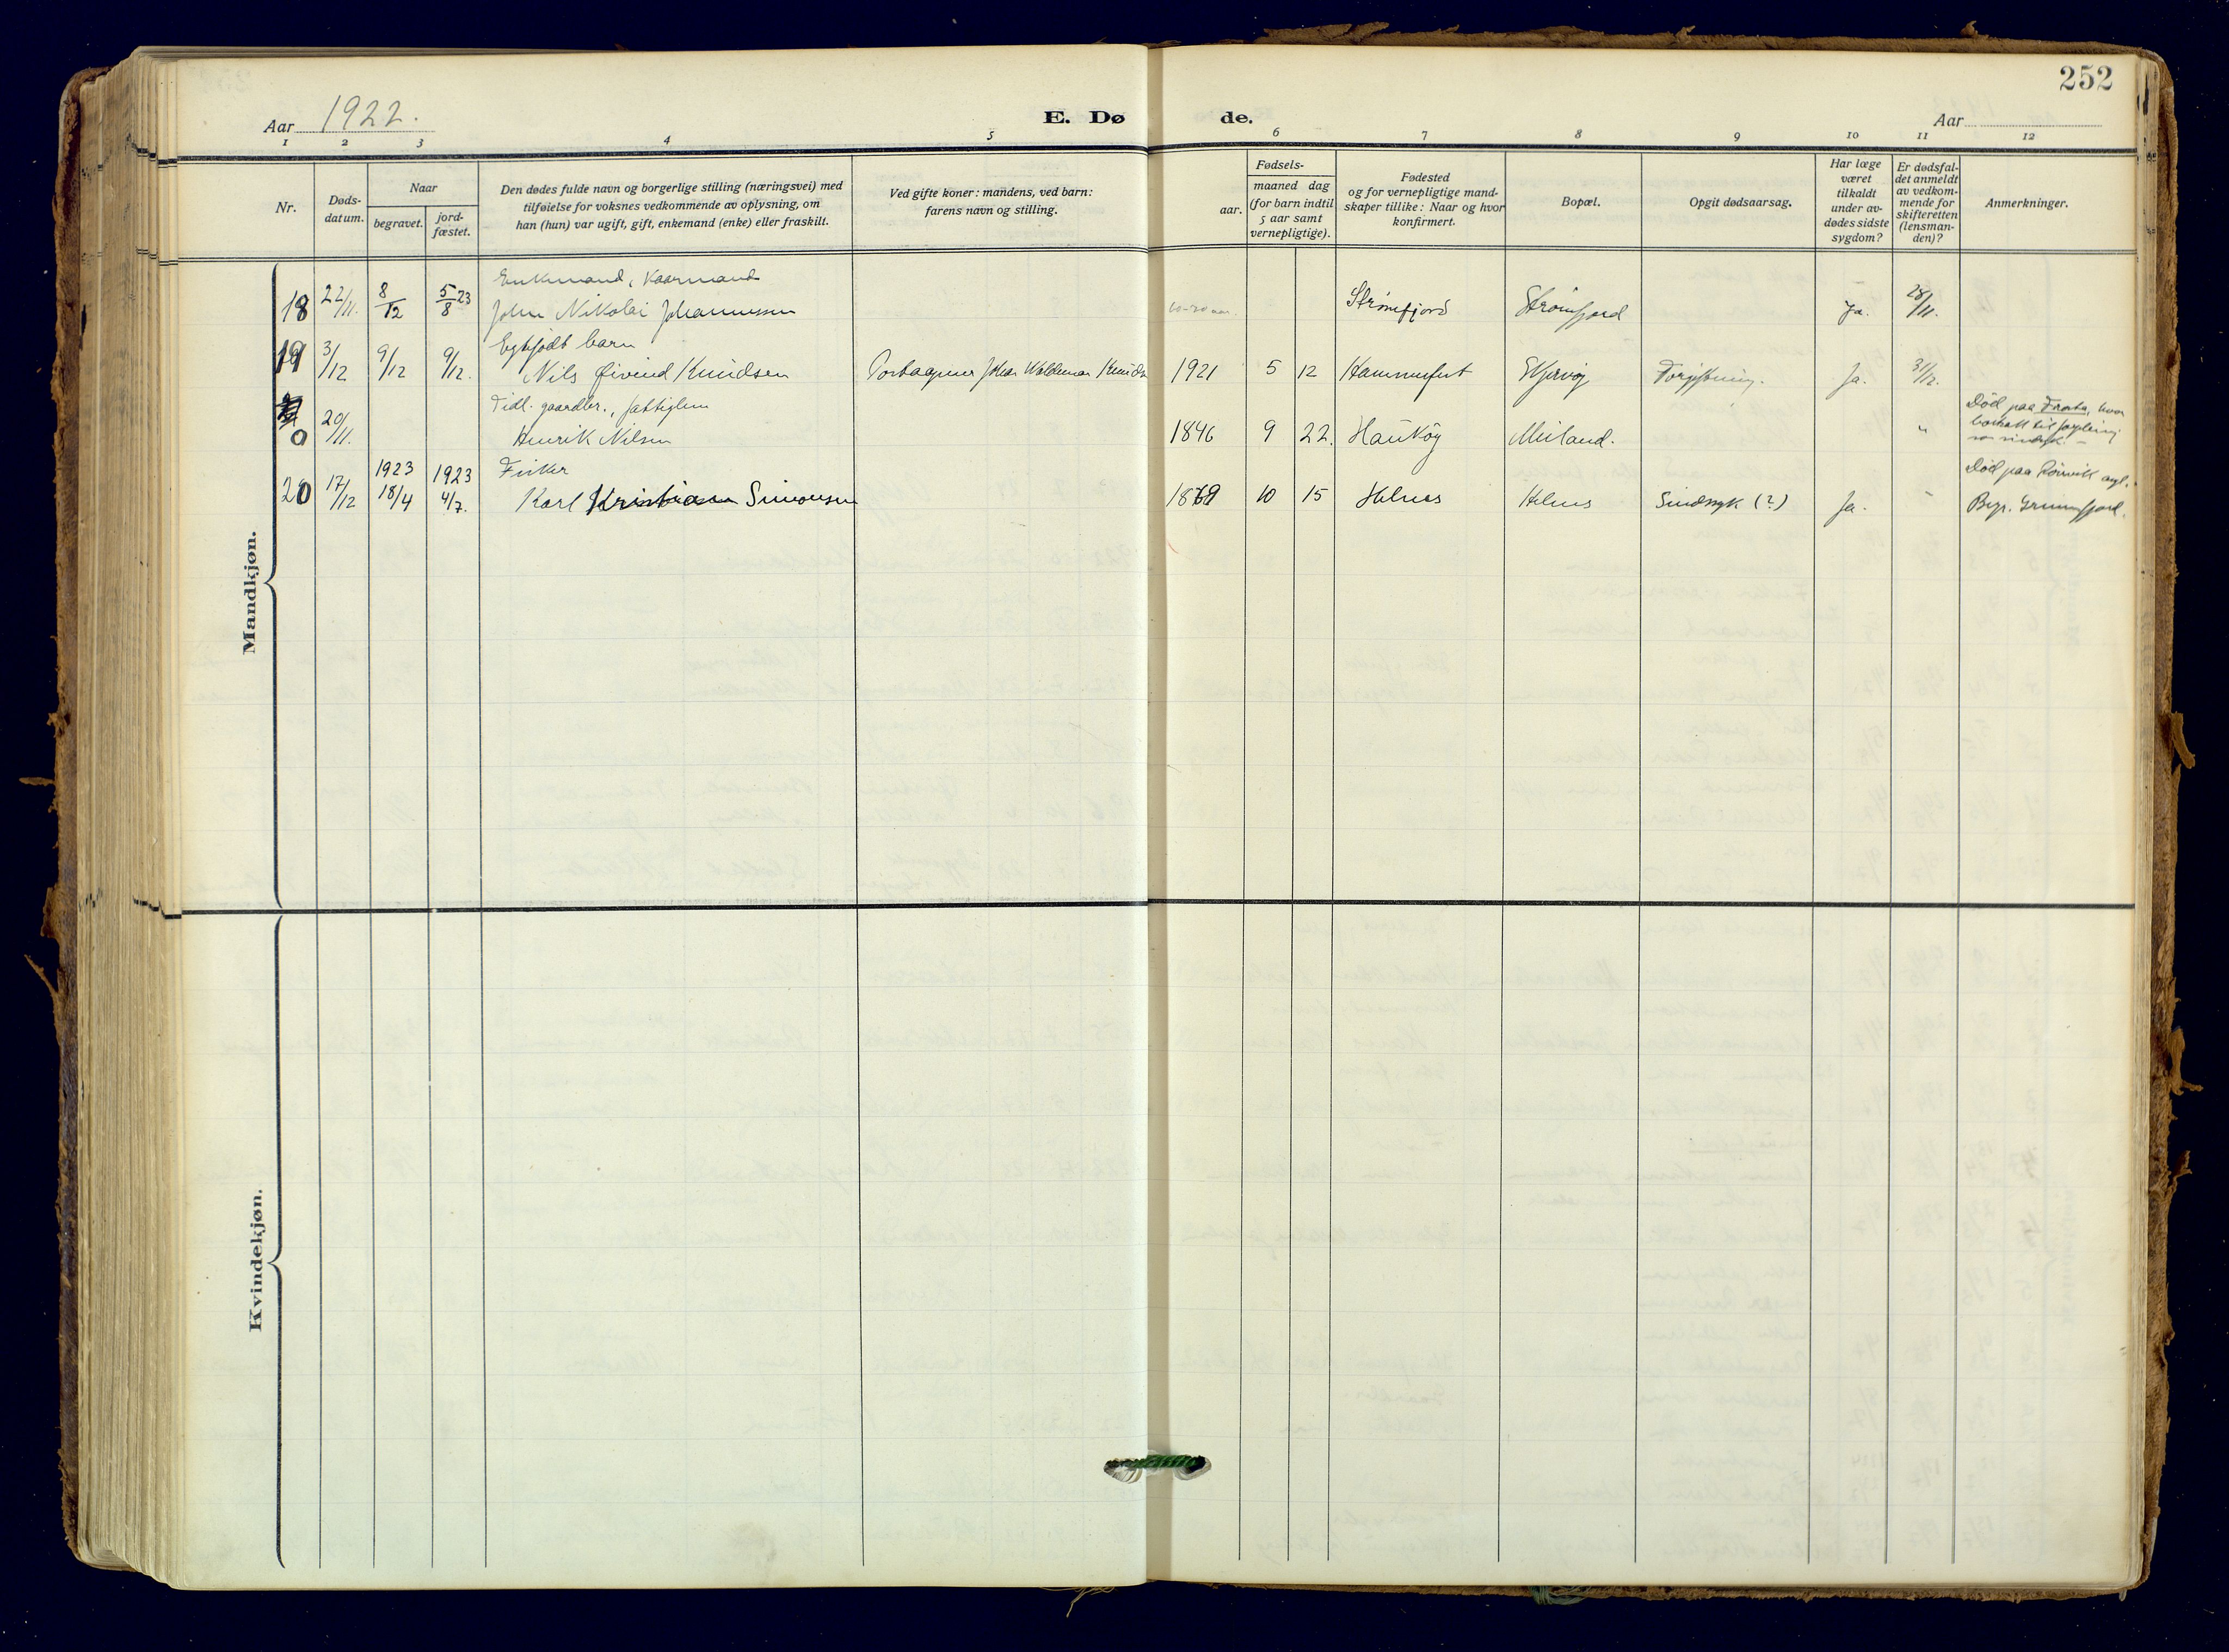 252
Aar 1922.
E. Dø de.
Aar
1 2 3 4 5 6 7 8 9 10 11 12
Nr.
Døds-
datum.
Naar
begravet.
jord-
fæstet.
Den dødes fulde navn og borgerlige stilling (næringsvei) med
tilføielse for voksnes vedkommende av oplysning, om
han (hun) var ugift, gift, enkemand (enke) eller fraskilt.
Ved gifte koner: mandens, ved barn:
farens navn og stilling.
Fødsels-
aar.
maaned dag
(for barn indtil
5 aar samt
vernepligtige).
Fødested
og for vernepligtige mand-
skaper tillike: Naar og hvor
konfirmert.
Bopæl.
Opgit dødsaarsag.
Har læge
været
tilkaldt
under av-
dødes sidste
sygdom?
Er dødsfal-
det anmeldt
av vedkom-
mende for
skifteretten
(lensman-
den)?
Anmerkninger.
Mandkjøn.
Enkemand, Kaarmand
18 22/11. 8/12 5/8 23 Johan Nikolai Johannessen 60-70 aar. Strømfjord Strømfjord Ja. 28/11.
Egtefødt barn
19 3/12 9/12 9/12. Nils Øivind Knudsen Johan Waldemar Knudsen 1921 5 12 Hammerfest Skjervøy Forgiftning. Ja. 31/12.
Tidl. gaardbr., fattiglem
0 20/11. Henrik Nilsen 1846 9 22. Hauköy Meiland. "
Död paa Frosta, hvor
bortsatt til forpleining
som sindssyk. -
Fisker
20 17/12 1923 18/4 1923 4/7. Karl Kristian Simonsen 1869 10 15 Helnes Helnes Sindssyk (?) Ja. -
Död paa Rönvik asyl.
Begr. Grunnfjord.
Kvindekjøn.